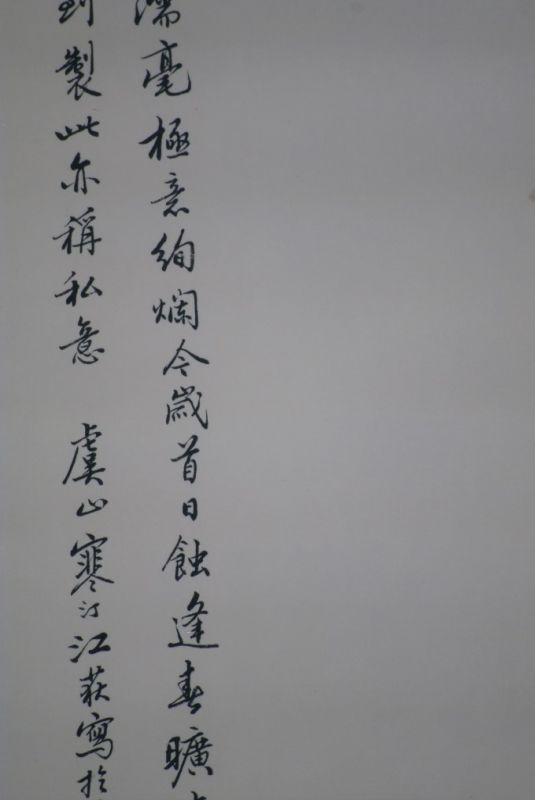 濡毫極意絢爛今歲首日蝕逢春曠
製此亦稱私意 虞山寒汀江荻寫於